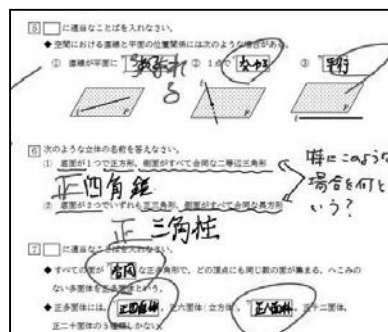 5 □に適当なことばを入れなさい。
◆ 空間における直線と平面の位置関係には次のような場合がある。
① 直線が平面に 含まれる ② 1点で 交わる ③ 平行
l P l P l P
6 次のような立体の名前を答えなさい。
① 底面が1つで正方形、側面がすべて合同な二等辺三角形
正四角錐
② 底面が2つでいずれも正三角形、側面がすべて合同な長方形
正三角柱
特にこのような
場合を何と
いう?
7 □に適当なことばを入れなさい。
◆ すべての面が 合同 な正多角形で、どの頂点にも同じ数の面が集まる、へこみの
ない多面体を正多面体という。
◆ 正多面体には、正四面体、正六面体(立方体)、正八面体、正十二面体、
正二十面体の5種類しかない。